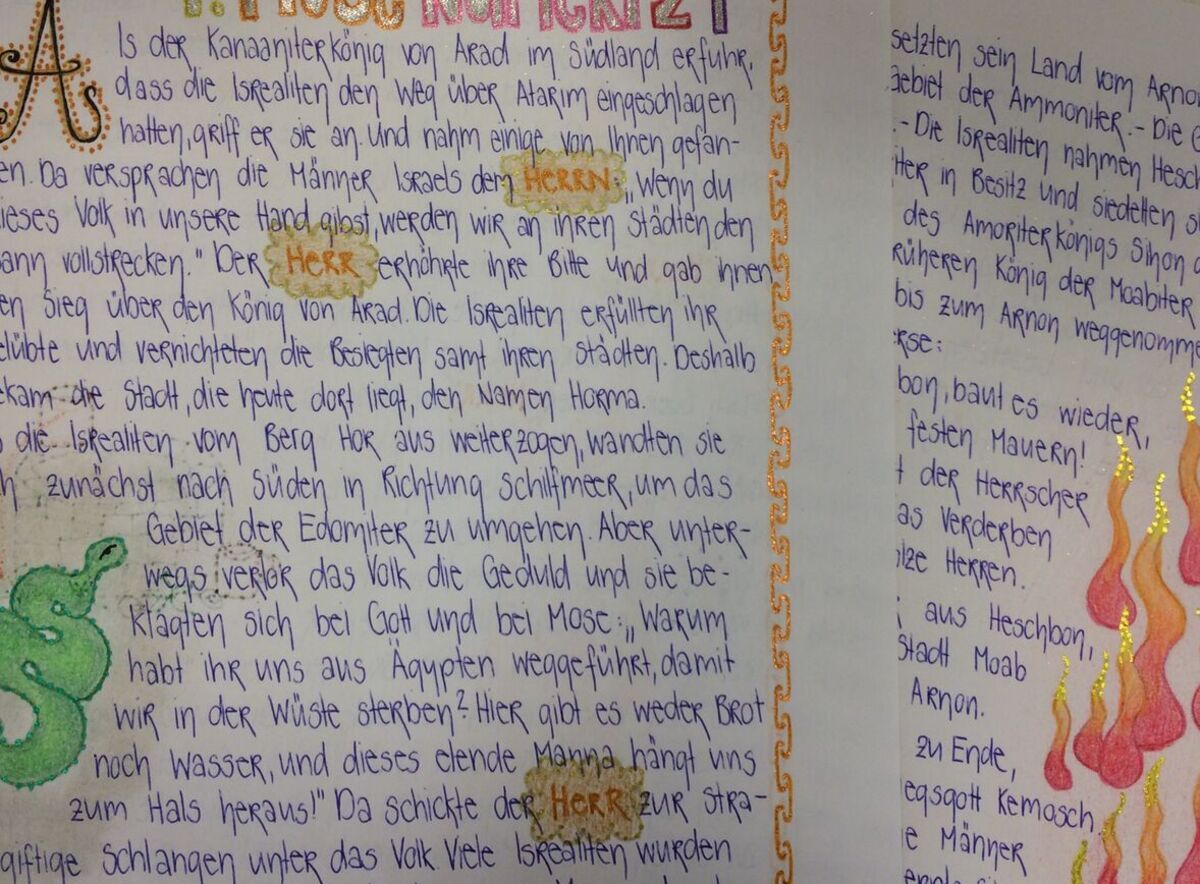 4. Mose Kapitel 21
Als der Kanaaniterkönig von Arad im Südland erfuhr,
dass die Isrealiten den Weg über Atarim eingeschlagen
hatten, griff er sie an. Und nahm einige von Ihnen gefan-
en. Da versprachen die Männer Israels dem HERRN „Wenn du
ieses Volk in unsere Hand gibst, werden wir an ihren Städten den
ann vollstrecken." Der HERR erhöhrte ihre Bitte und gab ihnen
en Sieg über den König von Arad. Die Isrealiten erfüllten ihr
elübte und vernichteten die Besiegten samt ihren Städten. Deshalb
ekam die Stadt, die heute dort liegt, den Namen Horma.
die Isrealiten vom Berg Hor aus weiterzogen, wandten sie
h zunächst nach Süden in Richtung Schilfmeer, um das
Gebiet der Edomiter zu umgehen. Aber unter-
wegs verlor das Volk die Geduld und sie be-
klagten sich bei Gott und bei Mose: „Warum
habt ihr uns aus Ägypten weggeführt, damit
wir in der Wüste sterben? Hier gibt es weder Brot
noch Wasser, und dieses elende Manna hängt uns
zum Hals heraus!" Da schickte der HERR zur Stra-
giftige Schlangen unter das Volk. Viele Isrealiten wurden
setzten sein Land vom Arno
Gebiet der Ammoniter.- Die
.- Die Isrealiten nahmen Hesch
ter in Besitz und siedelten s
des Amoriterkönigs Sihon
rüheren König der Moabiter
bis zum Arnon weggenomme
rse:
bon, baut es wieder,
festen Mauern!
t der Herrscher
as Verderben
olze Herren.
aus Heschbon,
Stadt Moab
Arnon.
zu Ende,
egsgott Kemosch.
e Männer